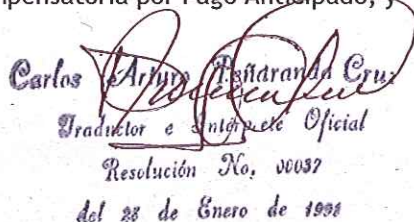 mpensatoria por Pago Anticipado, y
Carlos Arturo Peñaranda Cruz
Traductor e Intérprete Oficial
Resolución No. 00037
del 28 de Enero de 1998